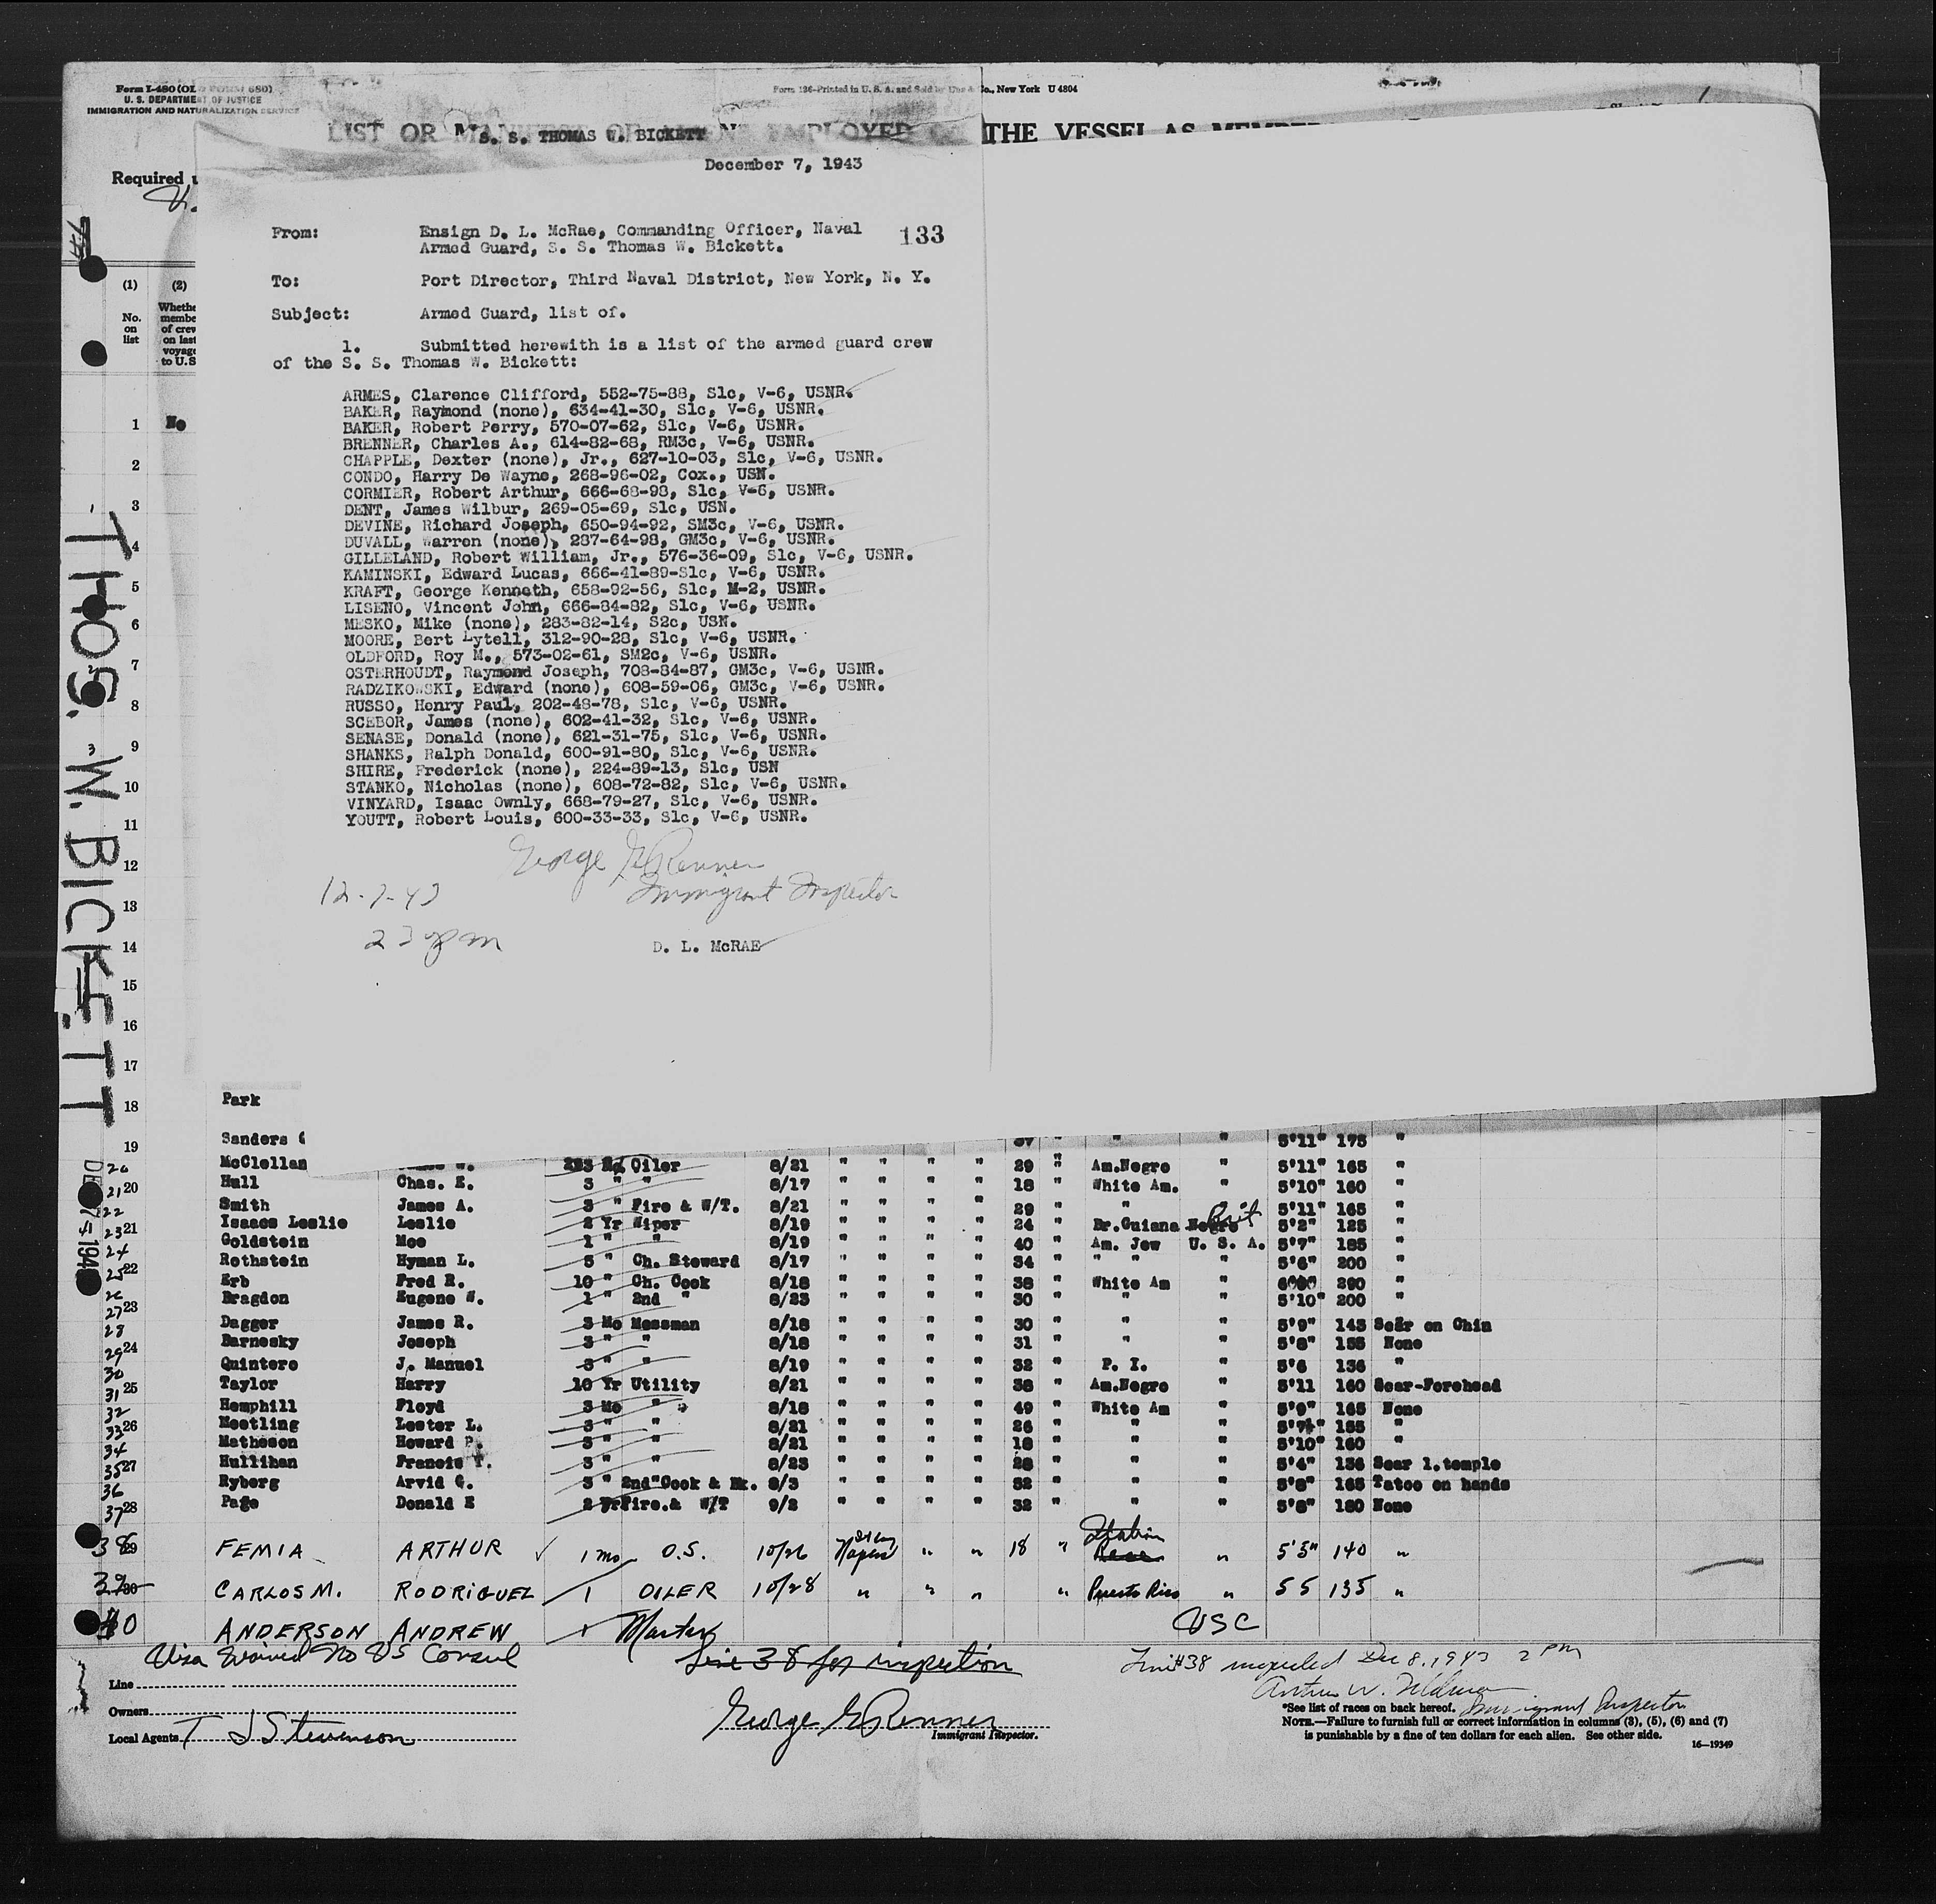 Form I-480 (OLD FORM 680)
U. S. DEPARTMENT OF JUSTICE
IMMIGRATION AND NATURALIZATION SERVICE
Form 126-Printed in U. S. A. and Sold by Co., New York U 4804
LIST OR EMPLOYED THE VESSEL AS
S. S. THOMAS W. BICKETT
December 7, 1943
Required
From: Ensign D. L. McRae, Commanding Officer, Naval
Armed Guard, S. S. Thomas W. Bickett.
133
To: Port Director, Third Naval District, New York, N. Y.
Subject: Armed Guard, list of.
1. Submitted herewith is a list of the armed guard crew
of the S. S. Thomas W. Bickett:
ARMES, Clarence Clifford, 552-75-88, S1c, V-6, USNR.
BAKER, Raymond (none), 634-41-30, S1c, V-6, USNR.
BAKER, Robert Perry, 570-07-62, S1c, V-6, USNR.
BRENNER, Charles A., 614-82-68, RM3c, V-6, USNR.
CHAPPLE, Dexter (none), Jr., 627-10-03, S1c, V-6, USNR.
CONDO, Harry De Wayne, 268-96-02, Cox., USN.
CORMIER, Robert Arthur, 666-68-98, S1c, V-6, USNR.
DENT, James Wilbur, 269-05-69, S1c, USN.
DEVINE, Richard Joseph, 650-94-92, SM3c, V-6, USNR.
DUVALL, Warren (none), 287-64-98, GM3c, V-6, USNR.
GILLELAND, Robert William, Jr., 576-36-09, S1c, V-6, USNR.
KAMINSKI, Edward Lucas, 666-41-89-S1c, V-6, USNR.
KRAFT, George Kenneth, 658-92-56, S1c, M-2, USNR.
LISENO, Vincent John, 666-84-82, S1c, V-6, USNR.
MESKO, Mike (none), 283-82-14, S2c, USN.
MOORE, Bert Lytell, 312-90-28, S1c, V-6, USNR.
OLDFORD, Roy M., 573-02-61, SM2c, V-6, USNR.
OSTERHOUDT, Raymond Joseph, 708-84-87, GM3c, V-6, USNR.
RADZIKOWSKI, Edward (none), 608-59-06, GM3c, V-6, USNR.
RUSSO, Henry Paul, 202-48-78, S1c, V-6, USNR.
SCEBOR, James (none), 602-41-32, S1c, V-6, USNR.
SENASE, Donald (none), 621-31-75, S1c, V-6, USNR.
SHANKS, Ralph Donald, 600-91-80, S1c, V-6, USNR.
SHIRE, Frederick (none), 224-89-13, S1c, USN
STANKO, Nicholas (none), 608-72-82, S1c, V-6, USNR.
VINYARD, Isaac Ownly, 668-79-27, S1c, V-6, USNR.
YOUTT, Robert Louis, 600-33-33, S1c, V-6, USNR.
George G Renner
Immigrant Inspector
12-7-43
2 30 pm
D. L. McRAE
THOS. W. BICKETT
(1) (2)
No. on list
1 No
2
3
4
5
6
7
8
9
10
11
12
13
14
15
16
17
18 Park
19 Sanders 5'11" 175 "
McClellan 3 Mo Oiler 8/21 " " " " 29 " Am.Negro " 5'11" 165 "
20 Hull Chas. E. 3 " " 8/17 " " " " 18 " White Am. " 5'10" 160 "
22 Smith James A. 3 " Fire & W/T. 8/21 " " " " 29 " " " 5'11" 165 "
23 21 Isaacs Leslie Leslie 2 Yr Wiper 8/19 " " " " 24 " Br.Guiana Negro Brit 5'2" 125 "
24 Goldstein Moe 1 " " 8/19 " " " " 40 " Am. Jew U. S. A. 5'7" 185 "
25 22 Rothstein Hyman L. 5 " Ch. Steward 8/17 " " " " 34 " " " " 5'6" 200 "
26 Erb Fred R. 10 " Ch. Cook 8/18 " " " " 38 " White Am " 290 "
27 23 Bragdon Eugene W. 1 " 2nd " 8/23 " " " " 30 " " " 5'10" 200 "
28 Dagger James R. 3 Mo Messman 8/18 " " " " 30 " " " 5'9" 145 Scar on Chin
29 24 Barnesky Joseph 3 " " 8/18 " " " " 31 " " " 5'8" 155 None
30 Quintero J. Manuel 3 " " 8/19 " " " " 32 " P. I. " 5'6 136 "
31 25 Taylor Harry 10 Yr Utility 8/21 " " " " 38 " Am.Negro " 5'11 160 Scar-Forehead
32 Hemphill Floyd 3 Mo " 8/18 " " " " 49 " White Am " 5'9" 165 None
33 26 Meetling Lester L. 3 " " 8/21 " " " " 26 " " " 155 "
34 Matheson Howard 3 " " 8/21 " " " " 18 " " " 5'10" 160 "
35 27 Hullihan Francis T. 3 " " 8/23 " " " " 28 " " " 5'4" 136 Scar l.temple
36 Ryberg Arvid G. 3 " 2nd"Cook & Bk. 8/3 " " " " 32 " " " 5'8" 165 Tatoo on hands
37 28 Page Donald E 2 Yr Fire.& W/T 9/2 " " " " 32 " " " 5'8" 180 None
38 29 FEMIA ARTHUR 1 mo O.S. 10/26 " " 18 " Italian " 5'5" 140 "
39 30 CARLOS M. RODRIGUEZ 1 OILER 10/28 " " " " Puerto Rico " 5 5 135 "
40 ANDERSON ANDREW Master USC
Visa Waived No US Consul
Line 38 for inspection
Line #38 inspected Dec 8, 1943 2 PM
Line
Owners
Local Agents T J Stevenson
George G Renner
Immigrant Inspector.
Immigrant Inspector
*See list of races on back hereof.
NOTE.—Failure to furnish full or correct information in columns (3), (5), (6) and (7)
is punishable by a fine of ten dollars for each alien. See other side.
16—19349